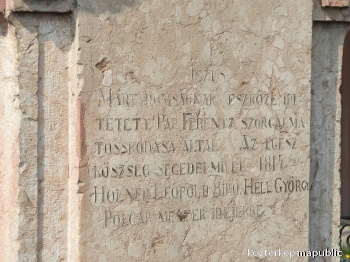 EZ ES
MÁRTYROMSÁGNAK ESZKÖZE IPI
TETETT PAP FERENTZ SZORGALMA
TOSSKODÁSA ÁLTAL AZ EGÉSZ
KÖZSÉG SEGEDELMIVEL 1817
HOLNER LEOPOLD BÍRÓ HELL GYÖRG
POLGÁR MESTER IDEJEKBE
kozterkep.mapublic